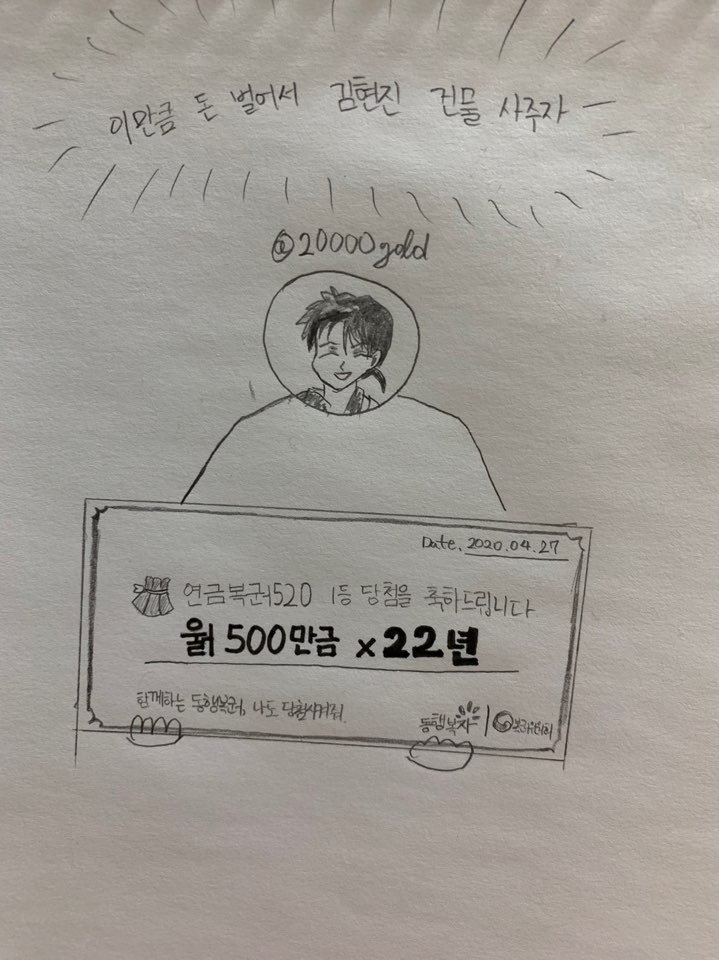 이만큼 돈 벌어서 김현진 건물 사주자
@20000gold
Date. 2020.04.27
연금복권520 1등 당첨을 축하드립니다
월 500만금 x 22년
함께하는 동행복권, 나도 당첨시켜줘.
동행복자 | 복권위원회